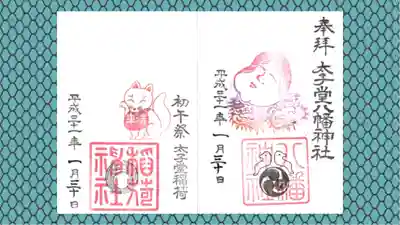 奉拝 太子堂八幡神社
平成三十一年 一月三十日
八幡神社
初午祭 太子堂稲荷
平成三十一年 一月三十日
稲荷神社